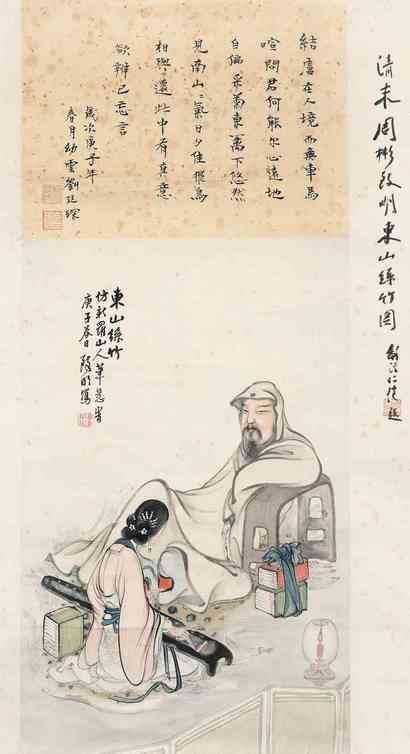 清末周彬東山絲竹圖
仁愷題
結廬在人境而無車馬
喧問君何能尔心遠地
自偏采菊東籬下悠然
見南山〻氣日夕佳飛鳥
相與還此中有真意
欲辨已忘言
歲次庚子年
春月幼雲劉廷琛
東山絲竹
仿新羅山人筆意
庚子春日寫